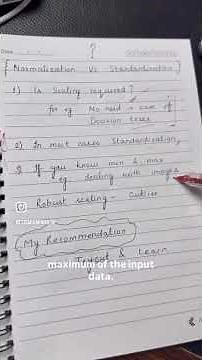 Date
?
Normalization Vs Standardization
1) Is Scaling required?
for eg No need in case of
Decision trees
2) In most cases Standardization
3 If you know min & max
eg dealing with images
Robust scaling - Outlier
My Recommendation
& Learn
maximum of the input
data.